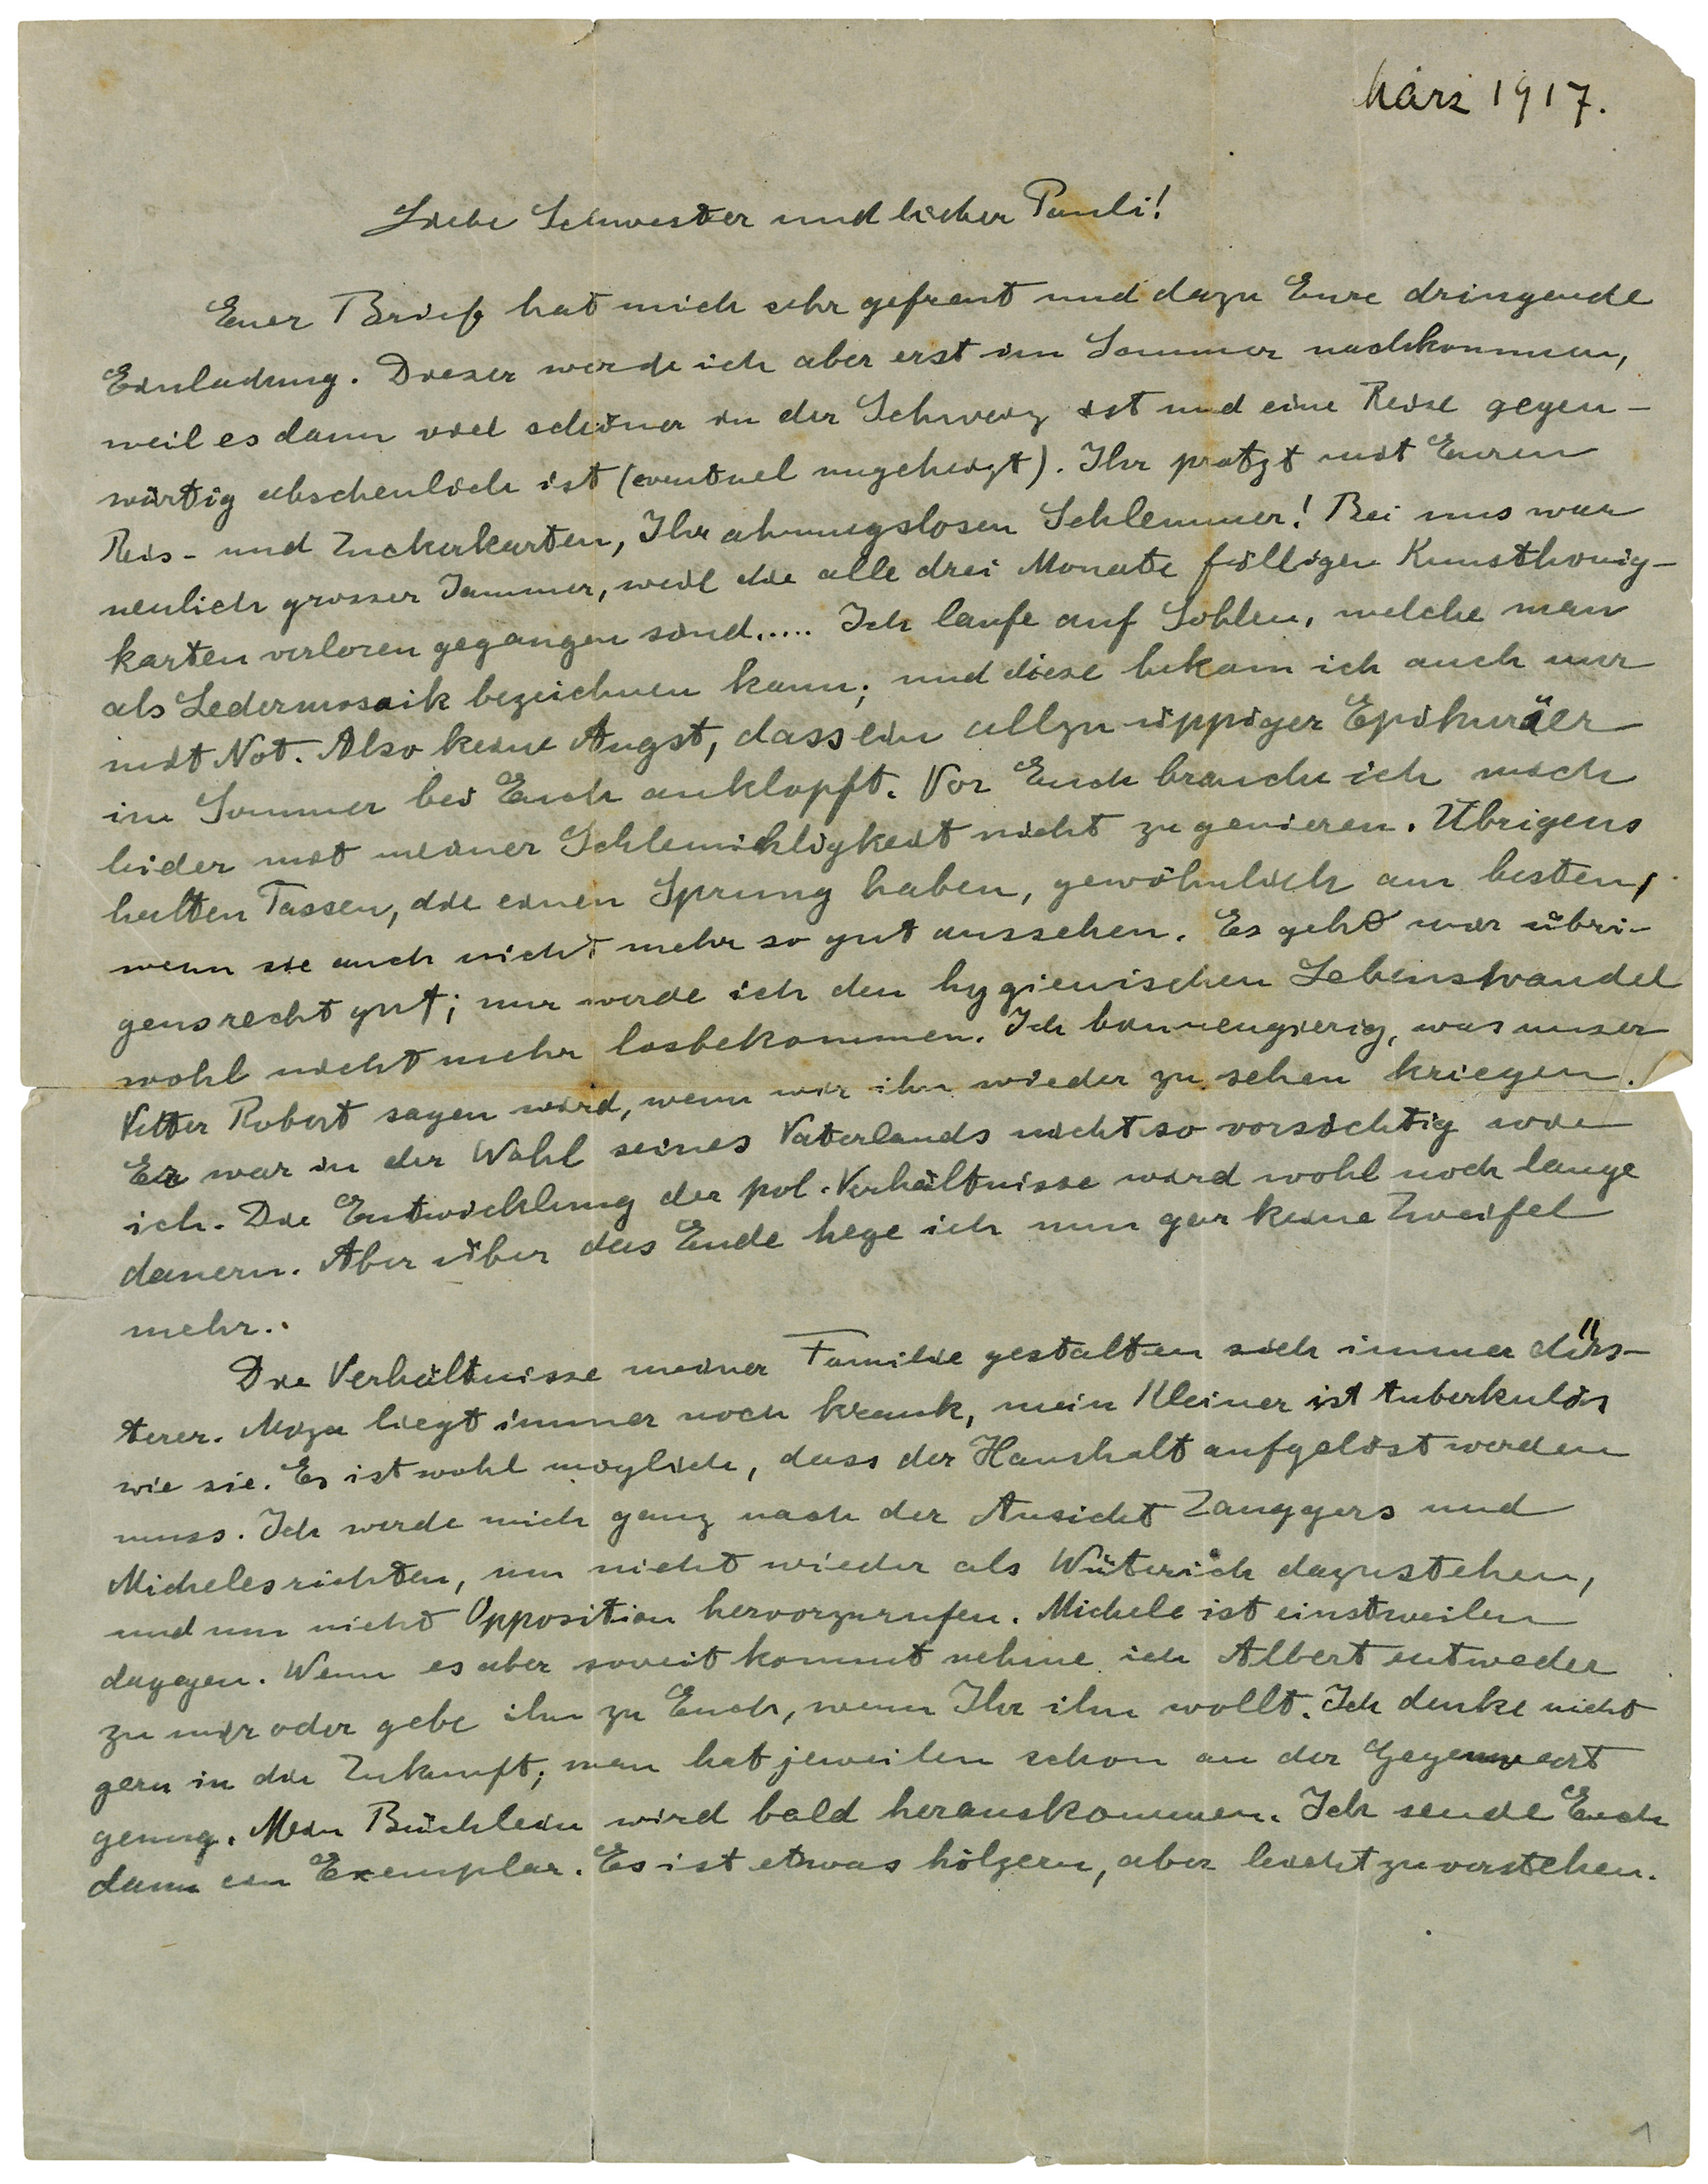 März 1917.
Liebe Schwester und lieber Pauli!
Euer Brief hat mich sehr gefreut und dazu Eure dringende
Einladung. Dieser werde ich aber erst im Sommer nachkommen,
weil es dann viel schöner in der Schweiz ist und eine Reise gegen-
wärtig abscheulich ist (eventuel ungeheizt). Ihr protzt mit Euren
Reis- und Zuckerkarten, Ihr ahnungslosen Schlemmer! Bei uns war
neulich grosser Jammer, weil die alle drei Monate fälligen Kunsthonig-
karten verloren gegangen sind..... Ich laufe auf Sohlen, welche man
als Ledermosaik bezeichnen kann; und diese bekam ich auch nur
mit Not. Also keine Angst, dass ein allzu üppiger Epikuräer
im Sommer bei Euch anklopft. Vor Euch brauche ich mich
leider mit meiner Schlemihligkeit nicht zu genieren. Übrigens
halten Tassen, die einen Sprung haben, gewöhnlich am besten,
wenn sie auch nicht mehr so gut aussehen. Es geht mir übri-
gens recht gut; nur werde ich den hygienischen Lebenswandel
wohl nicht mehr losbekommen. Ich bin neugierig, was unser
Vetter Robert sagen wird, wenn wir ihn wieder zu sehen kriegen.
Er war in der Wahl seines Vaterlands nicht so vorsichtig wie
ich. Die Entwicklung der pol. Verhältnisse wird wohl noch lange
dauern. Aber über das Ende hege ich nun gar keine Zweifel
mehr.
Die Verhältnisse meiner Familie gestalten sich immer düs-
terer. Miza liegt immer noch krank, mein Kleiner ist tuberkulös
wie sie. Es ist wohl möglich, dass der Haushalt aufgelöst werden
muss. Ich werde mich ganz nach der Ansicht Zanggers und
Micheles richten, um nicht wieder als Wüterich dazustehen,
und um nicht Opposition hervorzurufen. Michele ist einstweilen
dagegen. Wenn es aber soweit kommt nehme ich Albert entweder
zu mir oder gebe ihn zu Euch, wenn Ihr ihn wollt. Ich denke nicht
gern in die Zukunft; man hat jeweilen schon an der Gegenwart
genug. Mein Büchlein wird bald herauskommen. Ich sende Euch
dann ein Exemplar. Es ist etwas hölzern, aber leicht zu verstehen.
1